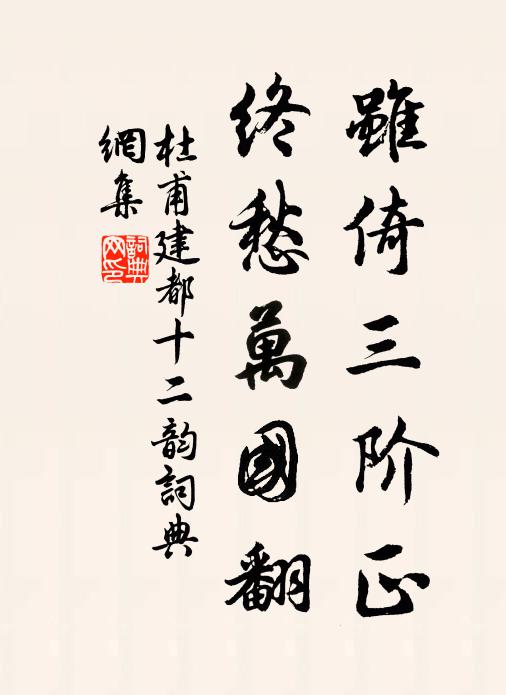 雖倚三阶正
終愁萬國翻
杜甫建都十二韵詞典
網集
詞典
网印